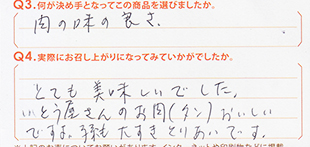 Q3.何が決め手となってこの商品を選びましたか。
肉の味の良さ。
Q4.実際にお召し上がりになってみていかがでしたか。
とても美味しいでした。
いとう屋さんのお肉(タン)おいしい
ですよ。 も大すきとりあいです。